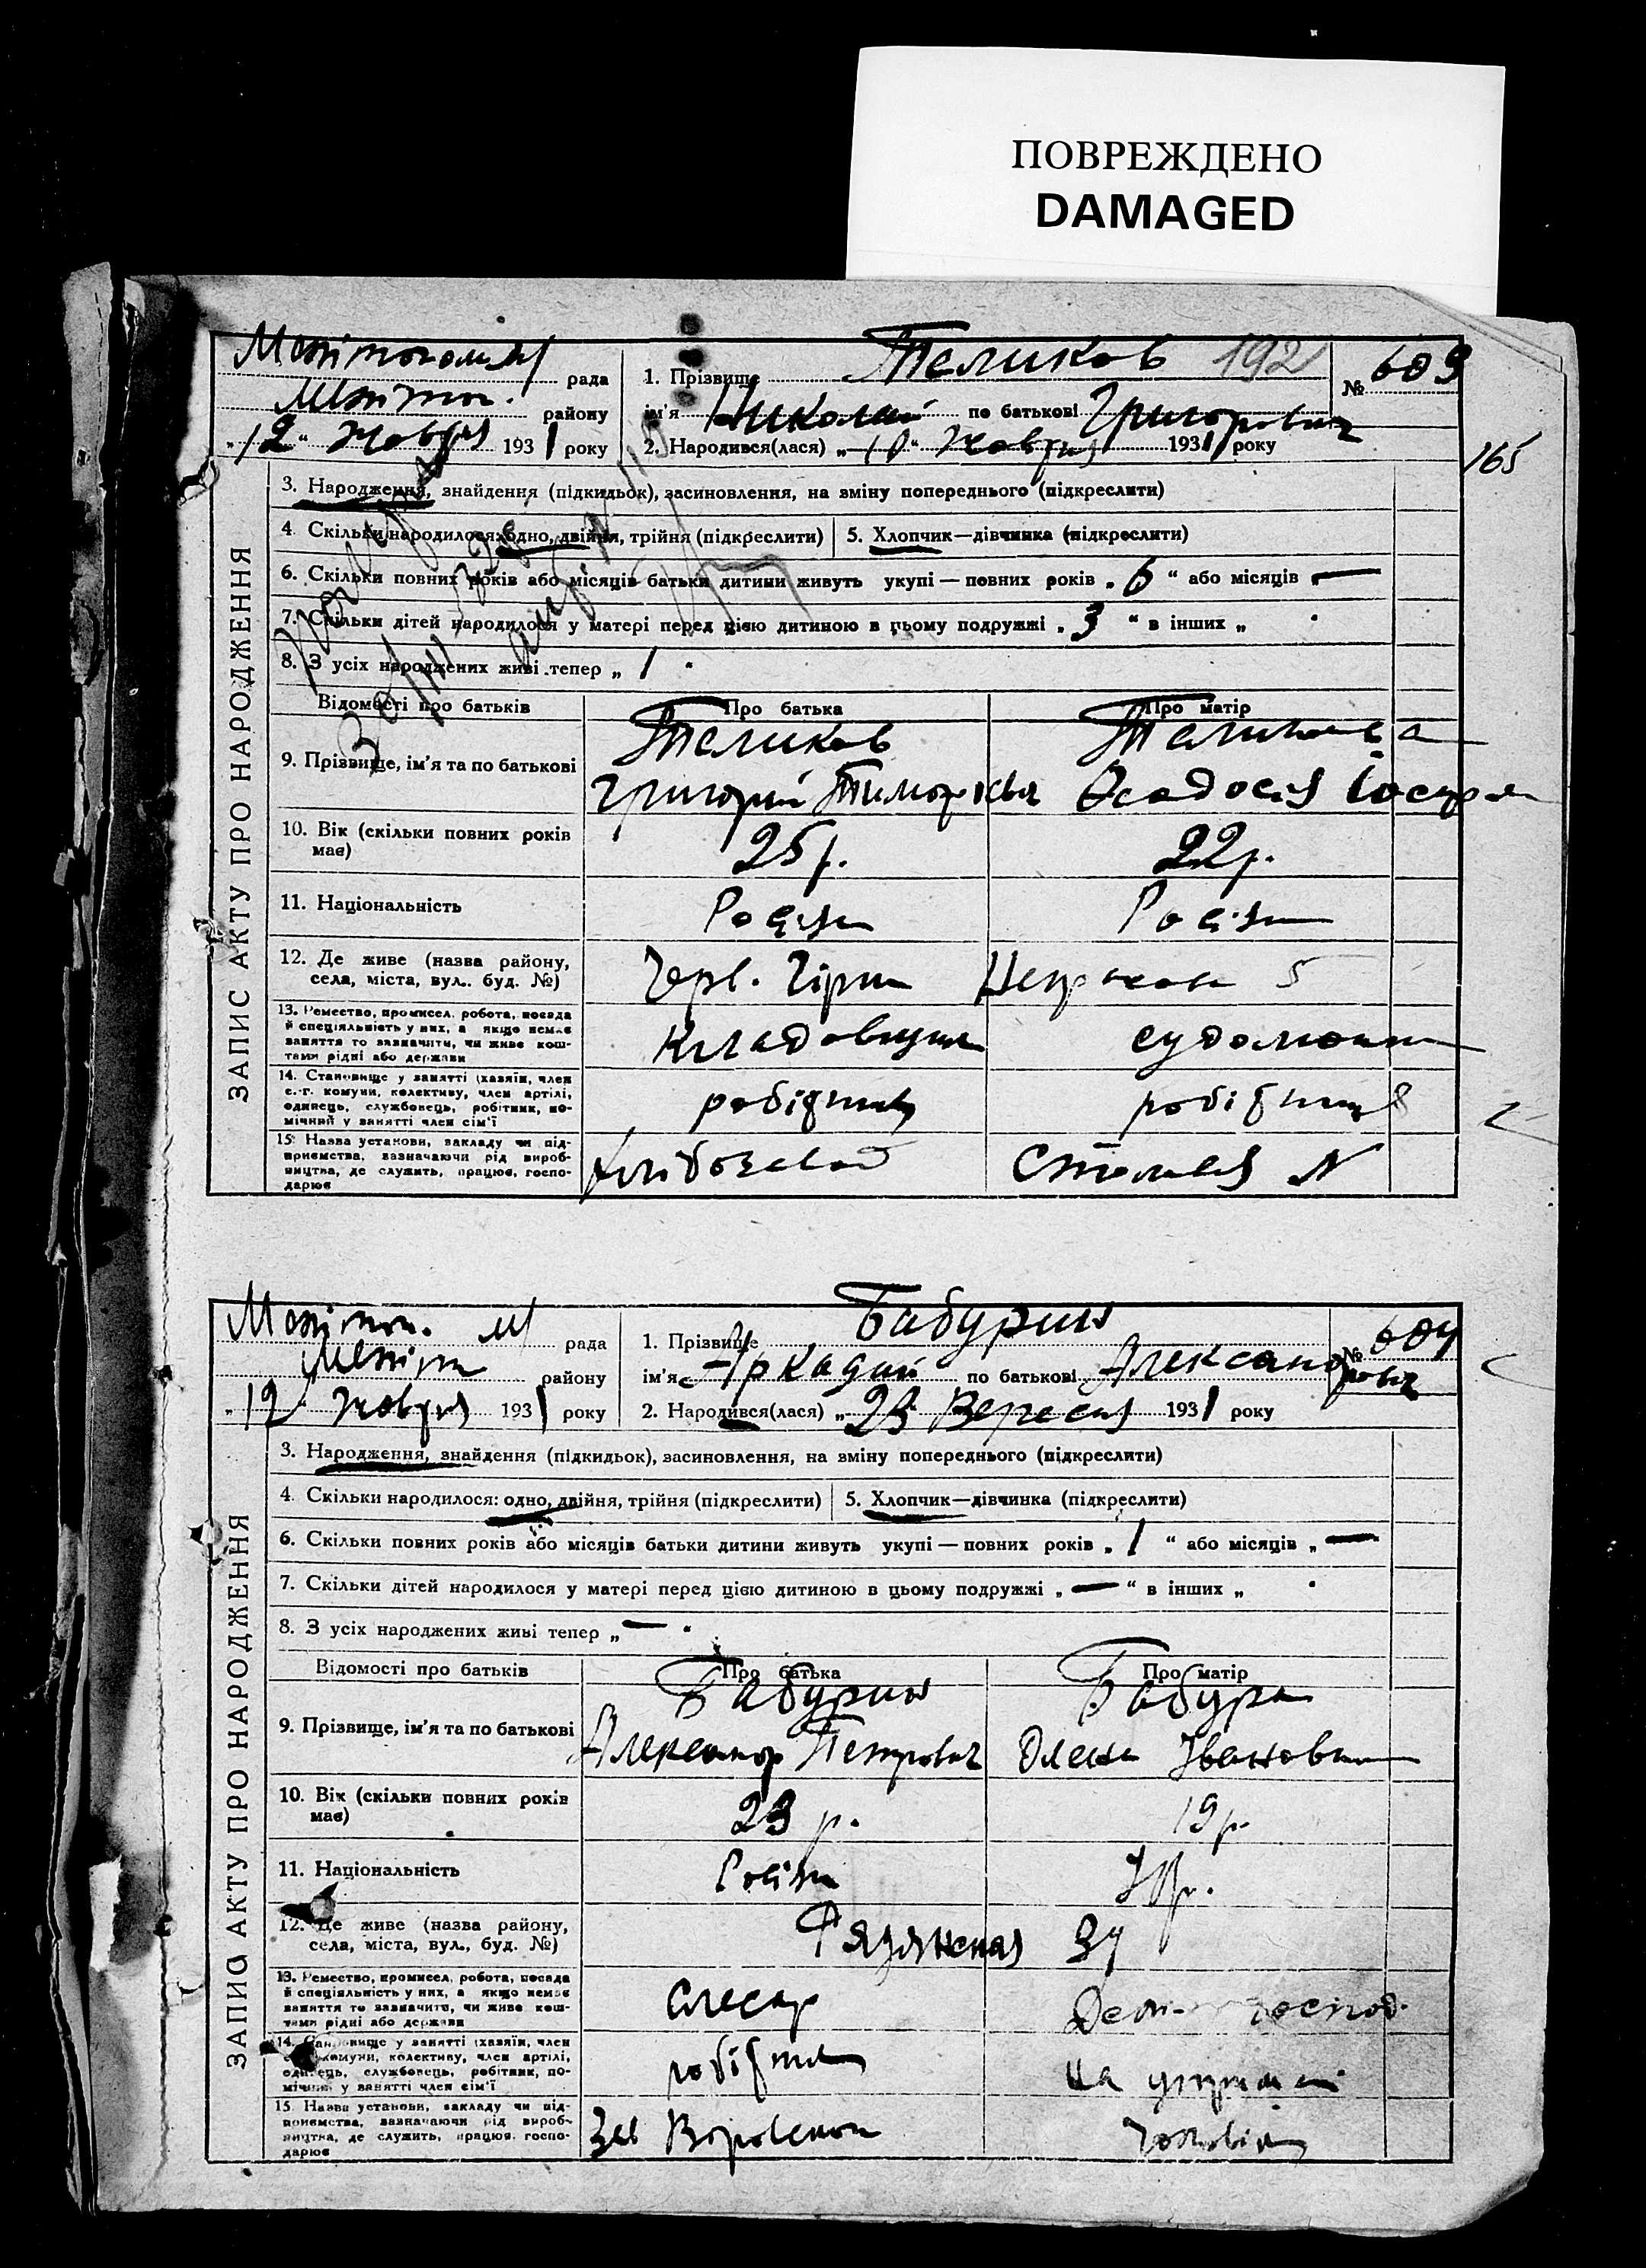 ПОВРЕЖДЕНО
DAMAGED
ЗАПИС АКТУ ПРО НАРОДЖЕННЯ
рада
району
"12" жовтня 1931 року
1. Прізвище Теликов 192
ім'я Николай по батькові Григорович
№ 603
2. Народився(лася) „10" жовтня 1931 року
165
3. Народження, знайдення (підкидьок), засиновлення, на зміну попереднього (підкреслити)
4. Скільки народилося: одно, двійня, трійня (підкреслити)
5. Хлопчик—дівчинка (підкреслити)
6. Скільки повних років або місяців батьки дитини живуть укупі — повних років „6" або місяців —
7. Скільки дітей народилося у матері перед цією дитиною в цьому подружжі „3" в інших „
8. З усіх народжених живі тепер „1"
Відомості про батьків
Про батька
Про матір
9. Прізвище, ім'я та по батькові
Теликов
Теликова
Григорий
10. Вік (скільки повних років має)
25 р.
22 р.
11. Національність
Росіян
Росіян
12. Де живе (назва району, села, міста, вул. буд. №)
5
13. Ремество, промисел, робота, посада й спеціяльність у них, а якщо немає заняття то зазначити, чи живе коштами рідні або держави
Кладовщик
14. Становище у занятті (хазяїн, член с.-г. комуни, колективу, член артілі, одинець, службовець, робітник, помічний у занятті член сім'ї
робітник
робітниця
15. Назва установи, закладу чи підприємства, зазначаючи рід виробництва, де служить, працює, господарює
Хлібозавод
Столова №
ЗАПИС АКТУ ПРО НАРОДЖЕННЯ
рада
району
"12" жовтня 1931 року
1. Прізвище Бабурин
ім'я Аркадий по батькові Александрович
№ 604
2. Народився(лася) „23" Вересня 1931 року
3. Народження, знайдення (підкидьок), засиновлення, на зміну попереднього (підкреслити)
4. Скільки народилося: одно, двійня, трійня (підкреслити)
5. Хлопчик—дівчинка (підкреслити)
6. Скільки повних років або місяців батьки дитини живуть укупі — повних років „1" або місяців „—
7. Скільки дітей народилося у матері перед цією дитиною в цьому подружжі „—" в інших „
8. З усіх народжених живі тепер „—"
Відомості про батьків
Про батька
Про матір
9. Прізвище, ім'я та по батькові
Бабурин
Александр Петрович
Олена Івановна
10. Вік (скільки повних років має)
23 р.
19 р.
11. Національність
Росіян
Укр.
12. Де живе (назва району, села, міста, вул., буд. №)
Рязянская 34
13. Ремество, промисел, робота, посада й спеціяльність у них, а якщо немає заняття то зазначити, чи живе коштами рідні або держави
Слесар
Дом. господ.
14. Становище у занятті (хазяїн, член с.-г. комуни, колективу, член артілі, одинець, службовець, робітник, помічний у занятті член сім'ї
робітник
на утриманні
15. Назва установи, закладу чи підприємства, зазначаючи рід виробництва, де служить, працює, господарює
Зав Воровского
чоловіка